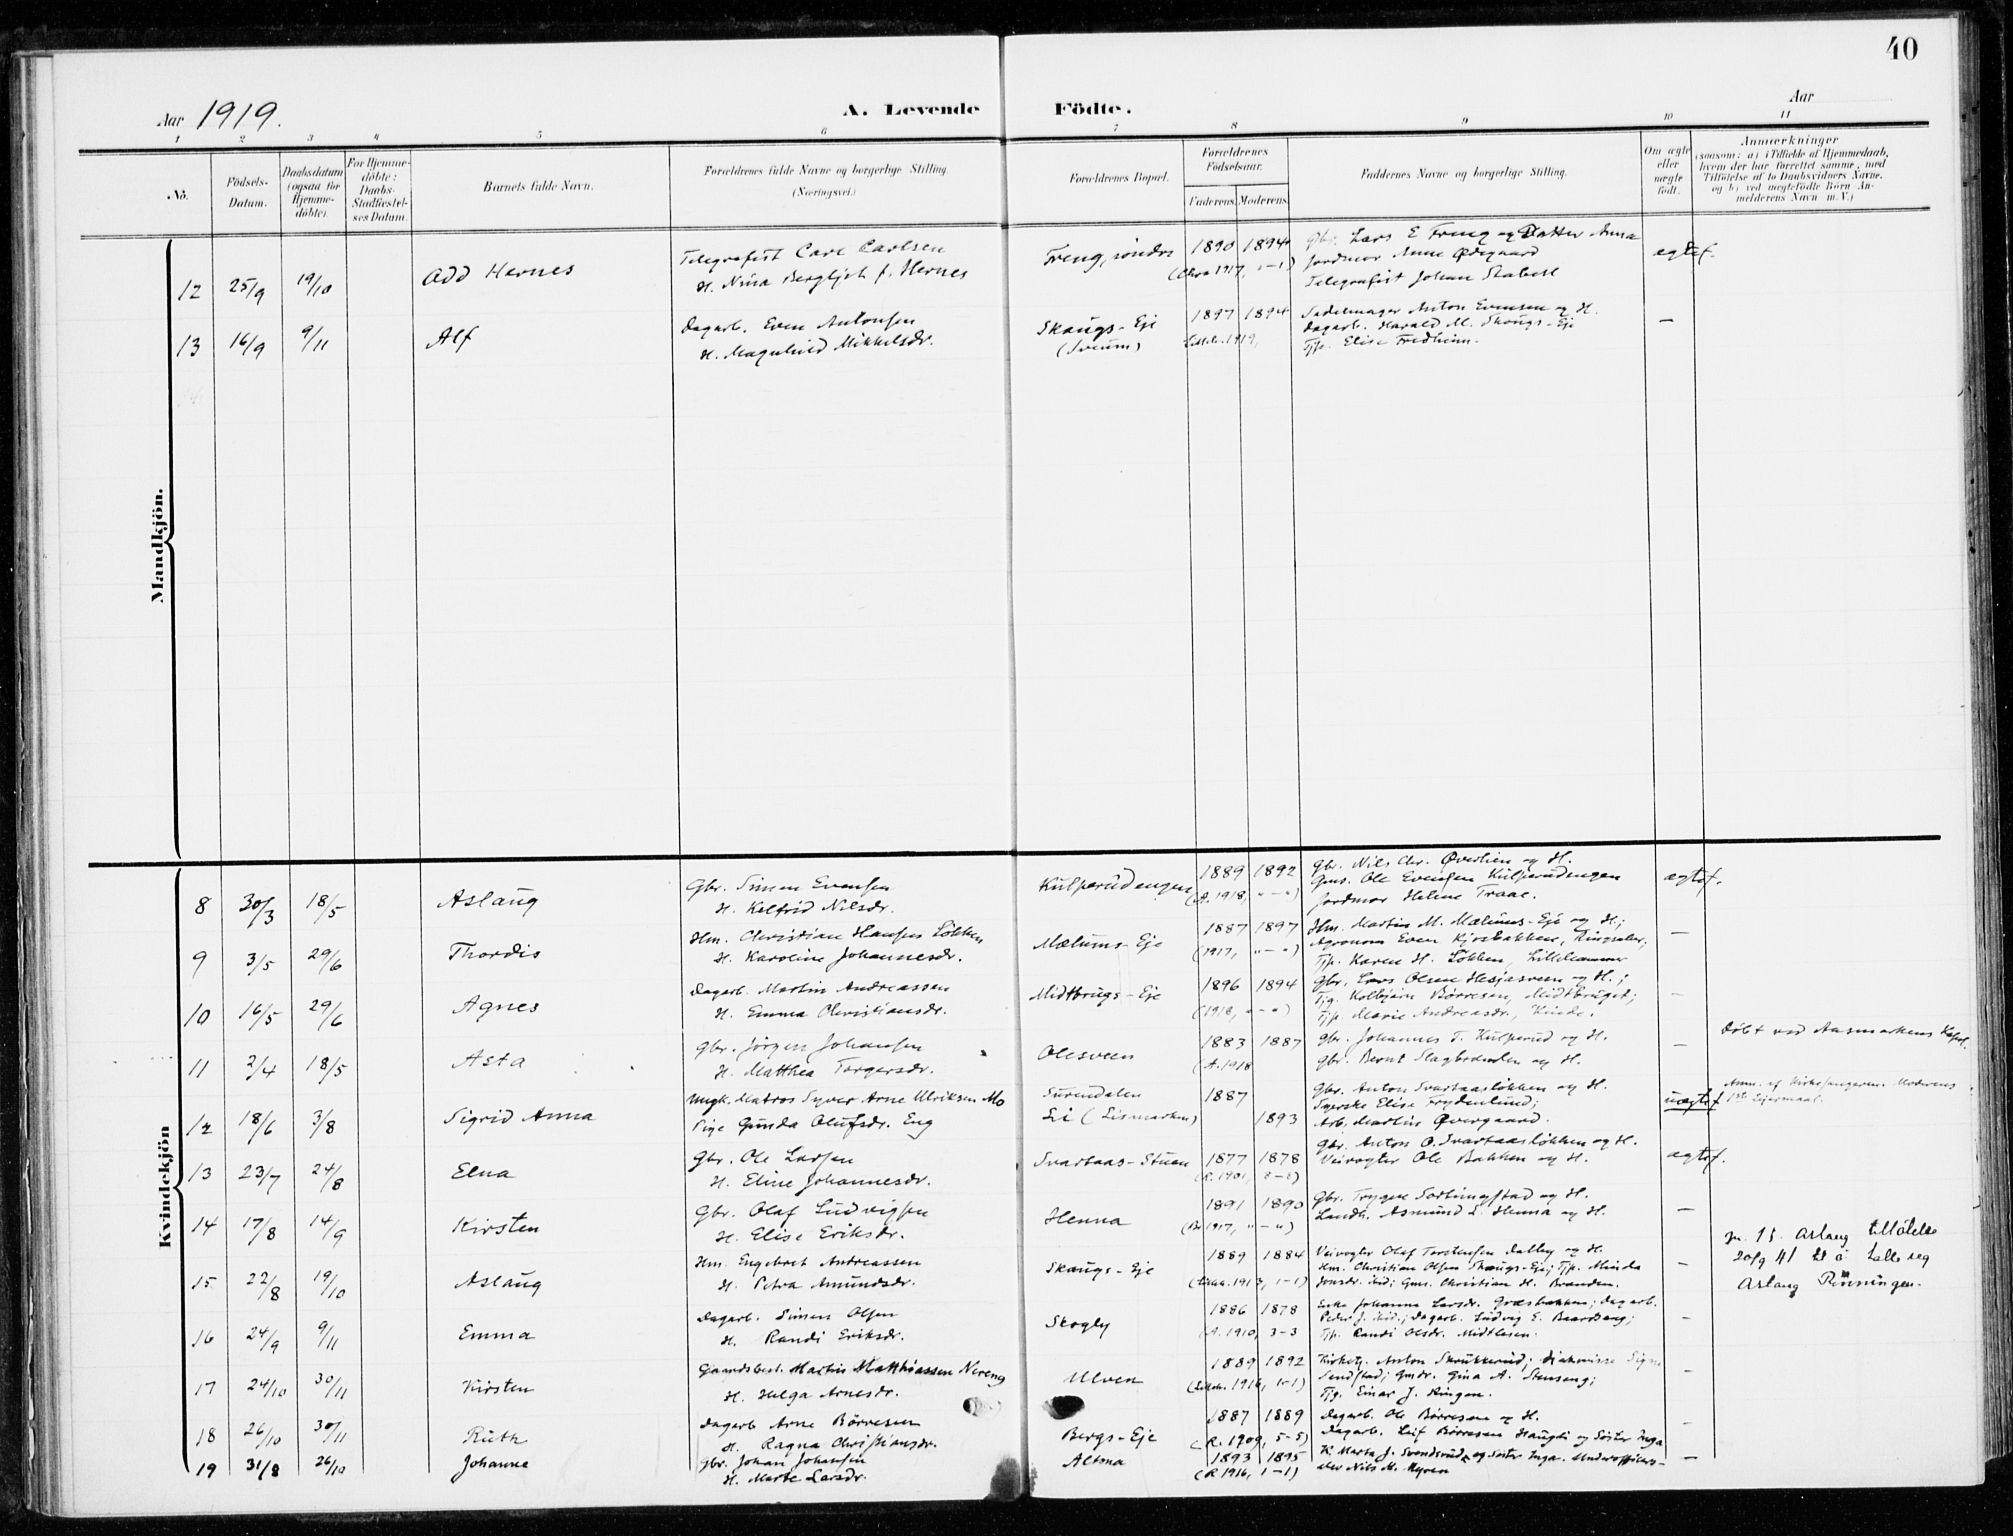 40
Aar 1919.
A. Levende Födte.
Aar
1 2 3 4 5 6 7 8 9 10 11
No.
Födsels-Datum.
Daabsdatum (ogsaa for Hjemme-döbte).
For Hjemme-döbte: Daabs-Stadfæstel-ses Datum.
Barnets fulde Navn.
Forældrenes fulde Navne og borgerlige Stilling. (Næringsvei.)
Forældrenes Bopæl.
Forældrenes Födselsaar.
Faderens. Moderens.
Faddernes Navne og borgerlige Stilling.
Om ægte eller uægte födt.
Anmærkninger (saasom: a) i Tilfælde af Hjemmedaab, hvem der har forrettet samme, med Tilföielse af to Daabsvidners Navne, og b) ved uægtefödte Börn An-melderens Navn m. V.)
Mandkjön.
12 25/9 19/10 Odd Hernes
Telegrafist Carl Carlsen
H. Nina Bergljot f. Hernes
Freng, söndre
1890 1894
Gbr. Lars E Freng og Datter Anna
Jordmor Anne Ødegaard
Telegrafist Johan Stabell
ægtef.
13 16/9 9/11 Alf
Dagarb. Even Antonsen
H. Magnhild Mikkelsdr.
Skaugs-Eje
(Sveum)
1897 1894
Sadelmager Anton Evensen og H.
Dagarb. Harald M. Skougs-Eje
Tjp. Elise Fredheim.
—
Kvindekjön
8 30/3 18/5 Aslaug
Gbr. Simen Evensen
H. Kelfrid Nilsdr.
Kulperudengen
1889 1892
(A. 1918, " — ")
Gbr. Nils Chr. Øverlien og H.
Gms. Ole Evensen Kulperudengen
Jordmor Helene Traae.
ægtef.
9 3/5 29/6 Thordis
Hm. Christian Hansen Løkken
H. Karoline Johannesdr.
Mælums-Eje
1887 1897
(1917, " — ")
Hm. Martin M. Mælums-Eje og H;
Agronom Even Kjosbakken, Ringsaker;
Tjp. Karen H. Løkken, Lillehammer
—
10 16/5 29/6 Agnes
Dagarb. Martin Andreassen
H. Emma Christiansdr.
Midtbrugs-Eje
1896 1894
(1918, " — ")
Gbr. Lars Olsen Hesjasveen og H.;
Tjg. Kolbjørn Børresen, Midtbruget;
Tjp. Marie Andreasdr.,
—
11 2/4 18/5 Asta
Gbr. Jørgen Johansen
H. Matthea Torgersdr.
Olesveen
1883 1887
(A. 1918
Gbr. Johannes T. Kulperud og H.
Gbr. Bernt Slagbrenden og H.
—
Døbt ved Aasmarkens Kapel.
12 18/6 3/8 Sigrid Anna
Ungk. Matros Syver Arne Ulriksen Mo
Pige Gunda Olufsdr. Eng
Surendalen
Li (Lismarken)
1887
1893
Gbr. Anton Svartaasløkken og H.
Syerske Elise Frydenlund;
Arb. Martin Øvergaard.
uægtef
Anm. af Kirkesangeren. Moderens
1ste Lejermaal.
13 23/7 24/8 Elna
Gbr. Ole Larsen
H. Eline Johannesdr.
Svartaas-Stuen
1877 1878
(R. 1901,
Gbr. Anton O. Svartaasløkken og H.
Veivogter Ole Bakken og H.
ægtef.
14 17/8 14/9 Kirsten
Gbr. Olaf Ludvigsen
H. Elise Eriksdr.
Henna
1891 1890
(Br. 1917, " — ")
Gbr. Trygve Sortungstad og H.
Landh. Asmund L. Henna og H.
—
15 22/8 19/10 Aslaug
Hm. Engebret Andreassen
H. Petra Amundsdr.
Skaugs-Eje
1889 1884
Veivogter Olaf Torstensen Dalby og H.
Hm. Christian Olsen Skaugs-Eje; Tjp. Minda
Jonsdr. ibid; Gms. Christian H. Branden.
—
Nr. 15. Aslaug tillatelse
20/9 41 til å kalle seg
Aslaug Rönningen.
16 24/9 9/11 Emma
Dagarb. Simen Olsen
H. Randi Eriksdr.
Skogly
1886 1878
(A. 1910, 3-3
Enke Johanne Larsdr. Græsbakken; Dagarb.
Peder J. ibid.; Dagarb. Ludvig E. Baardseng;
Tjp. Randi Olsdr. Midtlien.
—
17 24/10 30/11 Kirsten
Gaardsbest. Martin Matthiassen Nereng
H. Helga Arnesdr.
Ulven
1889 1892
(Lilleh. 1916, 1-1)
Kirketj. Anton Skrukkerud; Diakonisse Signe
Sendstad; Gmdr. Gina A. Stenseng;
Tjg. Einar J. Ringen.
—
18 26/10 30/11 Ruth
Dagarb. Arne Børresen
H. Ragna Christiansdr.
Bergs-Eje
1887 1889
(R. 1909, 5-5)
Dagarb. Ole Børresen og H.
Dagarb. Leif Børresen Haugli og Søster Inga
—
19 31/8 26/10 Johanne
Gbr. Johan Johansen
H. Marte Larsdr.
Altma
1893 1895
(R 1916, 1-1)
K. Marta J. Svendsrud og Søster Inga. Underofficers-
elev Nils M. Myren
—